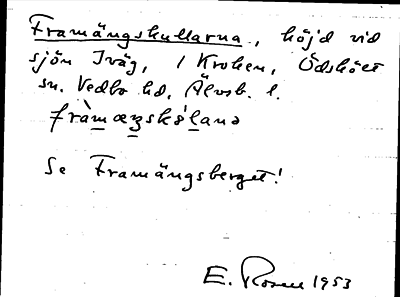 Framängskullarna, höjd vid
sjön Iväg, i Kroken, Ödskölts
sn. Vedbo hd, Älvsb. l.
fràmæŋskɵ́lana
Se Framängsberget!
E. Rosen 1953